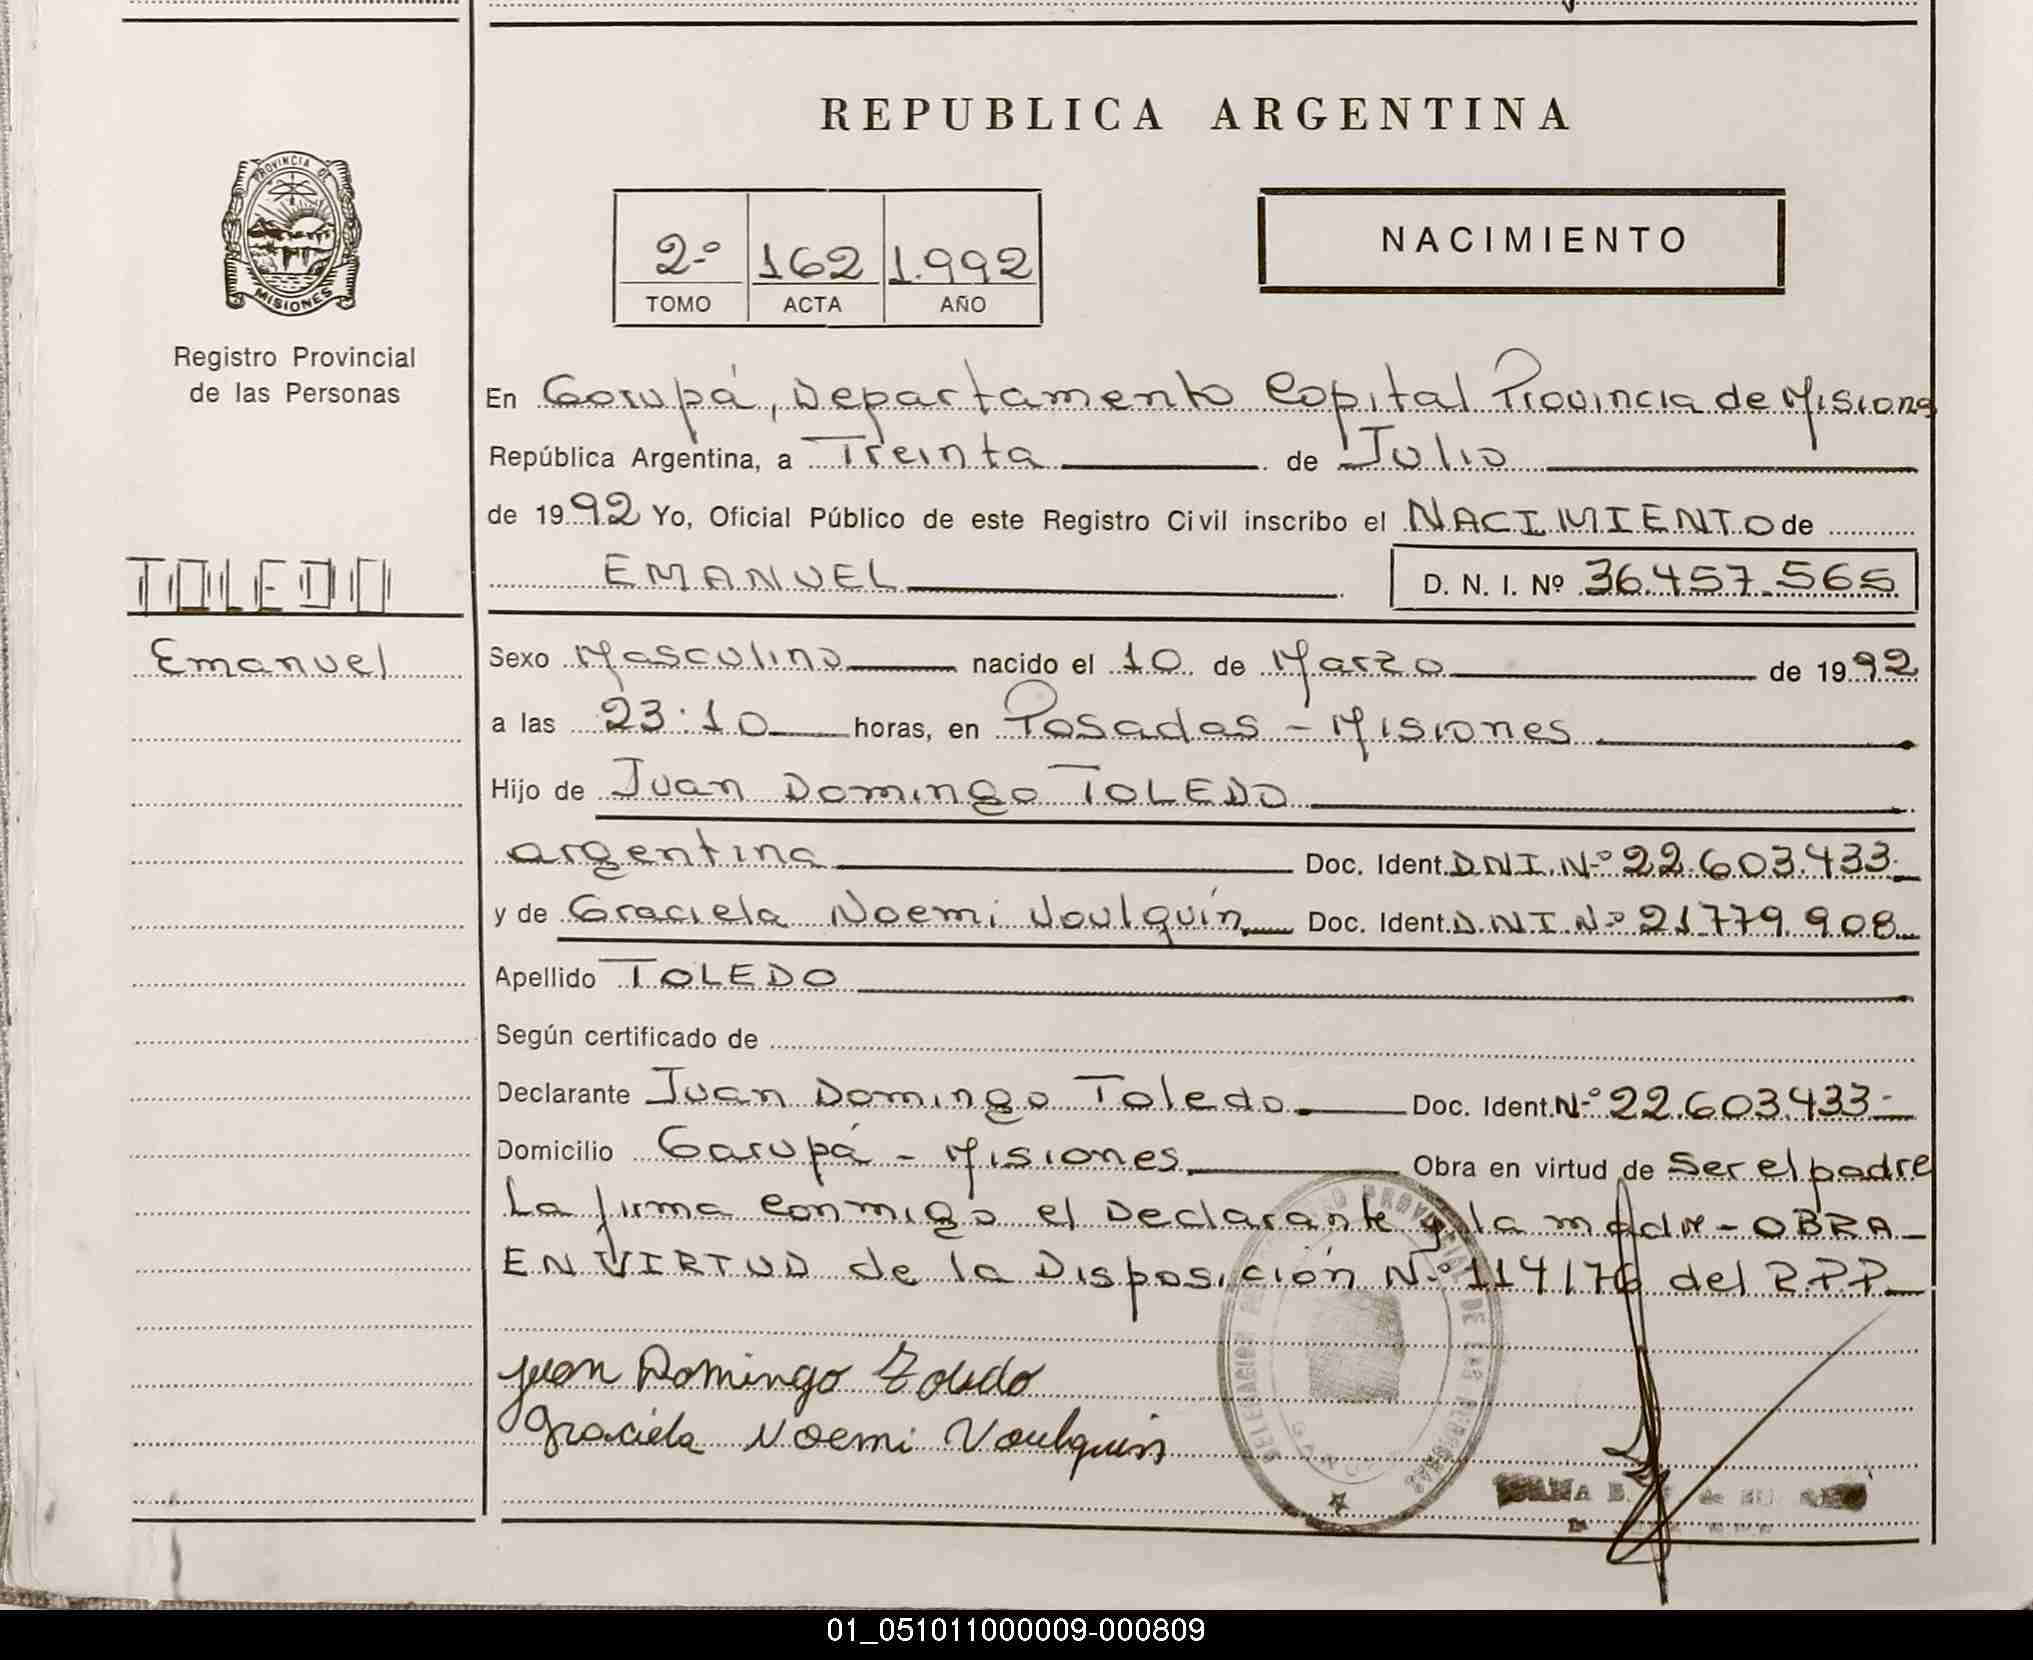 REPUBLICA ARGENTINA
PROVINCIA DE
MISIONES
Registro Provincial
de las Personas
2º 162 1.992
TOMO ACTA AÑO
NACIMIENTO
En Garupá, Departamento Capital Provincia de Misiones
República Argentina, a Treinta de Julio
de 1992 Yo, Oficial Público de este Registro Civil inscribo el NACIMIENTO de
EMANUEL D. N. I. Nº 36.457.565
TOLEDO
Emanuel
Sexo Masculino nacido el 10 de Marzo de 1992
a las 23:10 horas, en Posadas - Misiones
Hijo de Juan Domingo TOLEDO
argentina Doc. Ident. DNI. Nº 22.603.433
y de Graciela Noemi Voulquín Doc. Ident. D.N.I Nº 21779.908
Apellido TOLEDO
Según certificado de
Declarante Juan Domingo Toledo Doc. Ident. Nº 22.603.433
Domicilio Garupá - Misiones Obra en virtud de Ser el padre
La firma conmigo el Declarante y la madre - OBRA
EN VIRTUD de la Disposición Nº 114/76 del R.P.P.
Juan Domingo Toledo
Graciela Noemi Voulquin
PROVINCIAL DE LAS PERSONAS
01_051011000009-000809